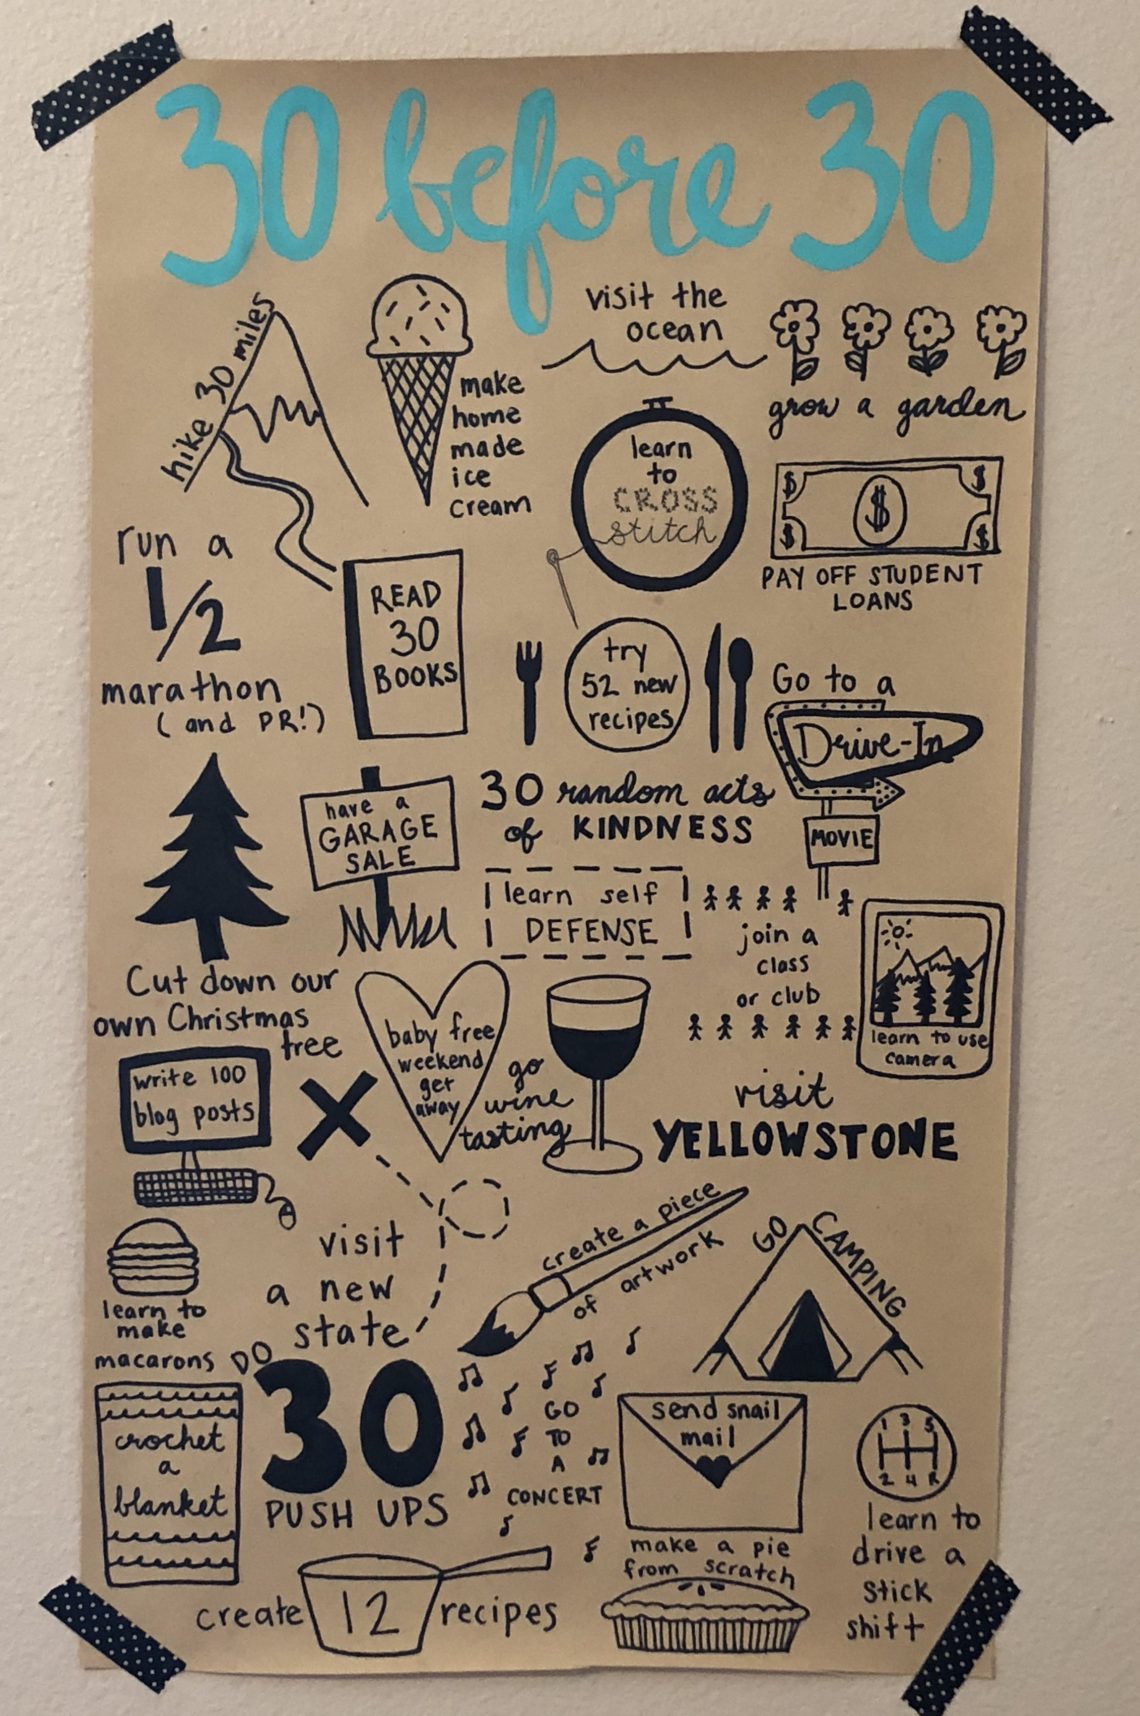 30 before 30
hike 30 miles
make
home
made
ice
cream
visit the
ocean
grow a garden
learn
to
CROSS
stitch
$ $
$
$ $
PAY OFF STUDENT
LOANS
run a
1/2
marathon
(and PR!)
READ
30
BOOKS
try
52 new
recipes
Go to a
Drive-In
MOVIE
have a
GARAGE
SALE
30 random acts
of KINDNESS
learn self
DEFENSE
join a
class
or club
learn to use
camera
Cut down our
own Christmas
tree
write 100
blog posts
baby free
weekend
get
away
go
wine
tasting
visit
YELLOWSTONE
learn to
make
macarons
visit
a new
state
create a piece
of artwork
GO CAMPING
crochet
a
blanket
DO
30
PUSH UPS
GO
TO
A
CONCERT
send snail
mail
1 3 5
2 4 R
learn to
drive a
stick
shift
create 12 recipes
make a pie
from scratch